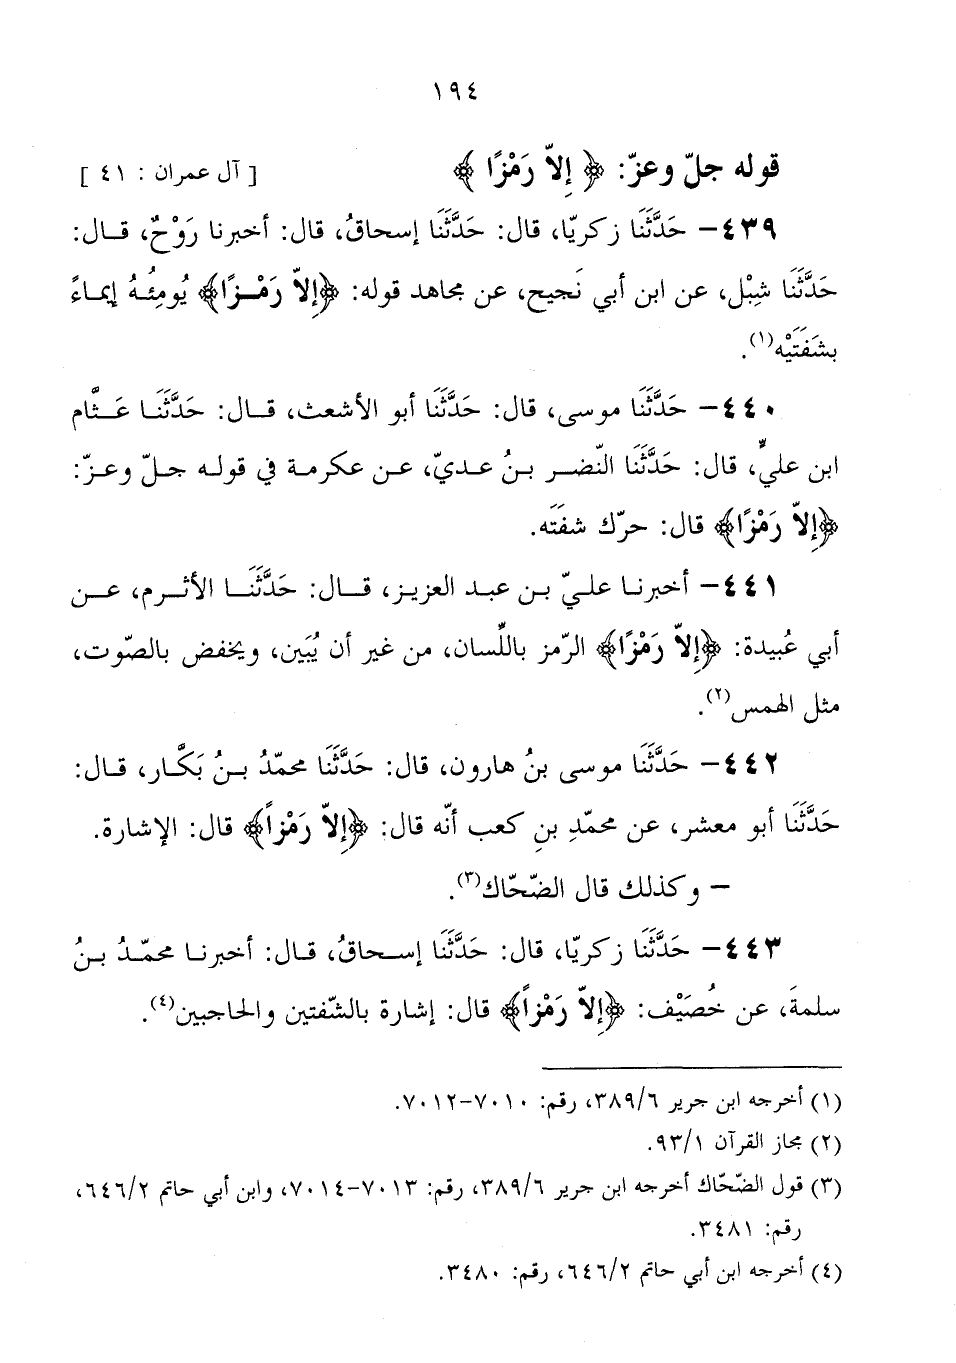 ١٩٤
قوله جلّ وعزّ: ﴿ إِلاّ رَمْزًا ﴾ [ آل عمران : ٤١ ]
٤٣٩- حَدَّثَنَا زكريّا، قال: حَدَّثَنَا إسحاقُ، قال: أخبرنا رَوْحٌ، قـال:
حَدَّثَنَا شِبْل، عن ابن أبي نَجيح، عن مجاهد قوله: ﴿إِلاّ رَمْـزًا﴾ يُومِئُـهُ إيمـاءً
بشَفَتَيْه(١).
٤٤٠- حَدَّثَنَا موسى، قال: حَدَّثَنَا أبو الأشعث، قـال: حَدَّثَنَـا عَـثَّام
ابن عليٍّ، قال: حَدَّثَنَا النّضـر بـنُ عـديّ، عـن عكرمـة في قولـه جـلّ وعـزّ:
﴿إِلاّ رَمْزًا﴾ قال: حرّك شفَتَه.
٤٤١- أخبرنـا علـيّ بـن عبـد العزيـز، قـال: حَدَّثَنَـا الأثـرم، عـن
أبي عُبيدة: ﴿إِلاّ رَمْزًا﴾ الرّمز باللِّسان، من غير أن يُبَين، ويخفض بالصّوت،
مثل الهمس(٢).
٤٤٢- حَدَّثَنَا موسى بنُ هارون، قال: حَدَّثَنَا محمّدُ بـنُ بَكَّـار، قـال:
حَدَّثَنَا أبو معشر، عن محمّدِ بنِ كعب أنّه قال: ﴿إِلاّ رَمْزاً﴾ قال: الإشارة.
- وكذلك قال الضّحّاك(٣).
٤٤٣- حَدَّثَنَا زكريّا، قال: حَدَّثَنَا إسـحاقُ، قـال: أخبرنـا محمّـدُ بـنُ
سلمةَ، عن خُصَيْف: ﴿إِلاّ رَمْزاً﴾ قال: إشارة بالشّفتين والحاجبين(٤).
(١) أخرجه ابن جرير ٣٨٩/٦، رقم: ٧٠١٠-٧٠١٢.
(٢) مجاز القرآن ٩٣/١.
(٣) قول الضّحّاك أخرجه ابن جرير ٣٨٩/٦، رقم: ٧٠١٣-٧٠١٤، وابن أبي حاتم ٦٤٦/٢،
رقم: ٣٤٨١.
(٤) أخرجه ابن أبي حاتم ٦٤٦/٢، رقم: ٣٤٨٠.